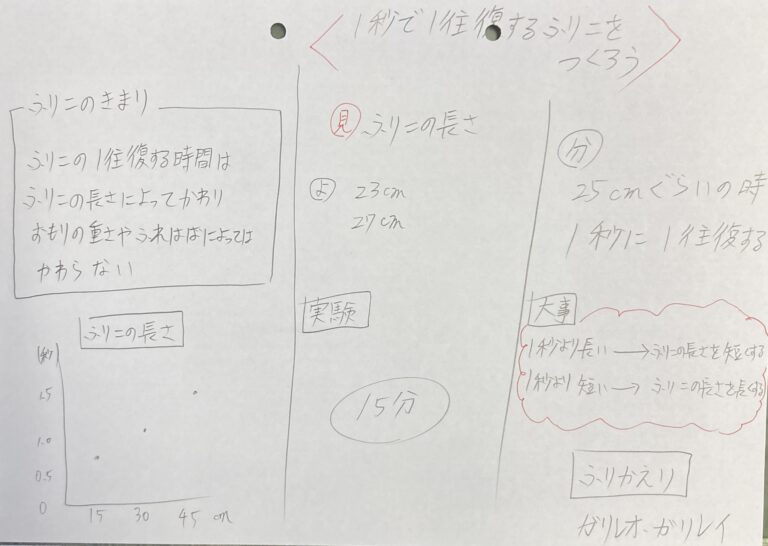 1秒で1往復するふりこを
つくろう
ふりこのきまり
ふりこの1往復する時間は
ふりこの長さによってかわり
おもりの重さやふれはばによっては
かわらない
ふりこの長さ
(秒)
1.5
1.0
0.5
0
15 30 45 cm
見 ふりこの長さ
よ 23cm
27cm
実験
15分
分
25cmぐらいの時
1秒に1往復する
大事
1秒より長い→ふりこの長さを短くする
1秒より短い→ふりこの長さを長くする
ふりかえり
ガリレオ・ガリレイ